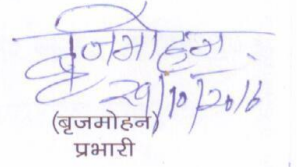 बृजमोहन
29/10/2016
(बृजमोहन)
प्रभारी